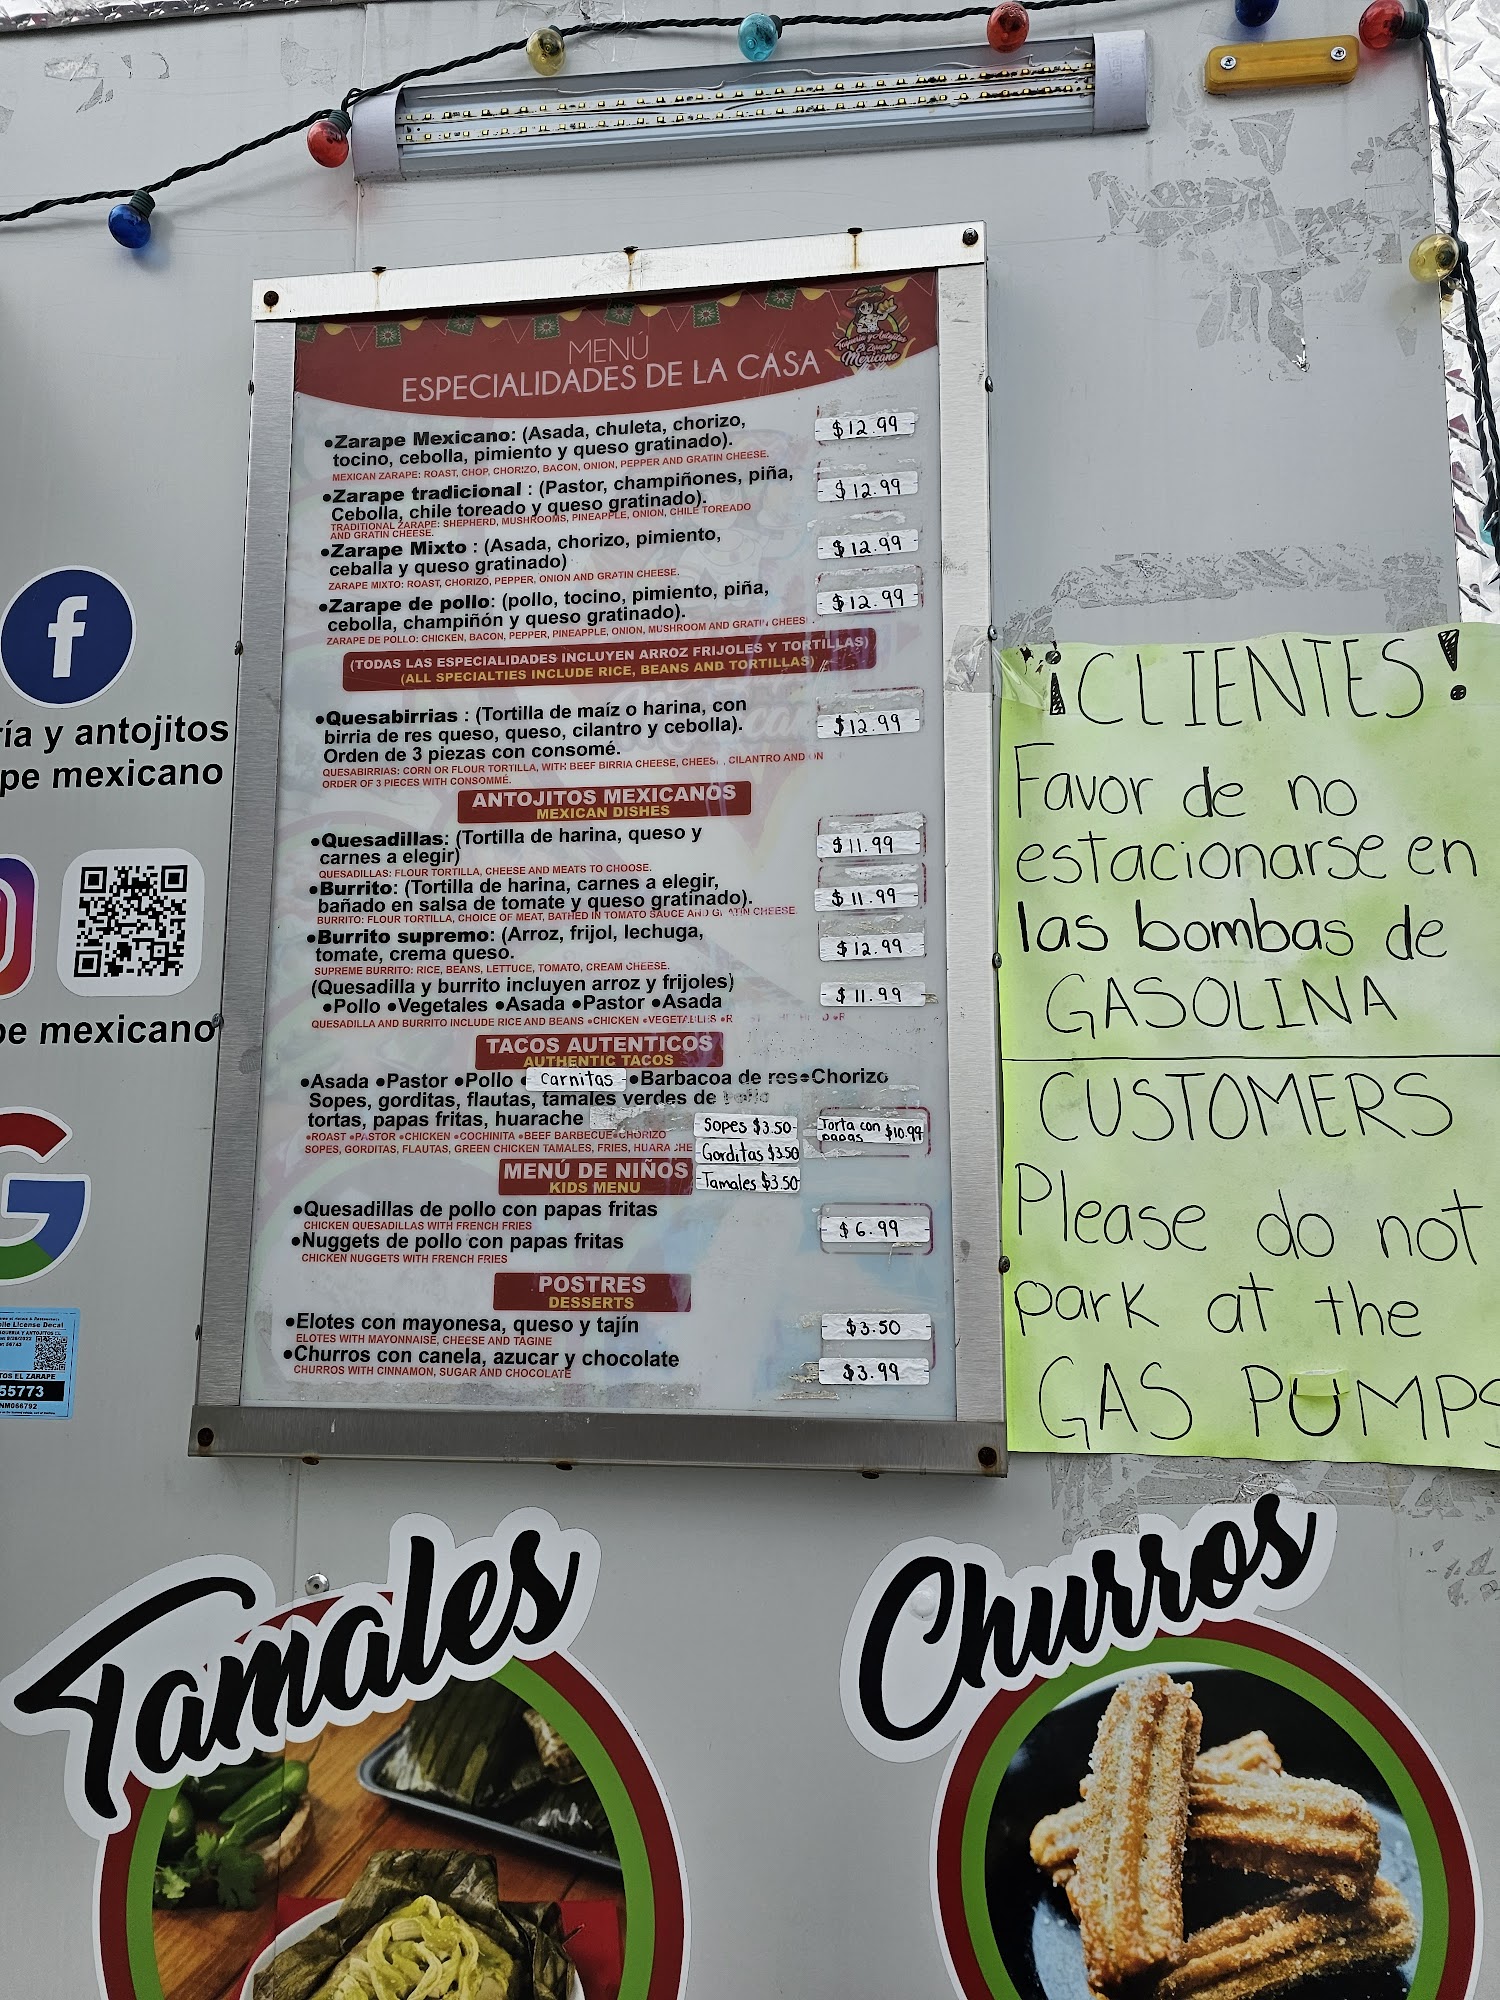 MENÚ
ESPECIALIDADES DE LA CASA
Taquería y Antojitos
El Zarape
Mexicano
•Zarape Mexicano: (Asada, chuleta, chorizo,
tocino, cebolla, pimiento y queso gratinado).
$12.99
MEXICAN ZARAPE: ROAST, CHOP, CHORIZO, BACON, ONION, PEPPER AND GRATIN CHEESE.
•Zarape tradicional : (Pastor, champiñones, piña,
Cebolla, chile toreado y queso gratinado).
$12.99
TRADITIONAL ZARAPE: SHEPHERD, MUSHROOMS, PINEAPPLE, ONION, CHILE TOREADO
AND GRATIN CHEESE.
•Zarape Mixto : (Asada, chorizo, pimiento,
ceballa y queso gratinado)
$12.99
ZARAPE MIXTO: ROAST, CHORIZO, PEPPER, ONION AND GRATIN CHEESE.
•Zarape de pollo: (pollo, tocino, pimiento, piña,
cebolla, champiñón y queso gratinado).
$12.99
ZARAPE DE POLLO: CHICKEN, BACON, PEPPER, PINEAPPLE, ONION, MUSHROOM AND GRATIN CHEES
(TODAS LAS ESPECIALIDADES INCLUYEN ARROZ FRIJOLES Y TORTILLAS)
(ALL SPECIALTIES INCLUDE RICE, BEANS AND TORTILLAS)
•Quesabirrias : (Tortilla de maíz o harina, con
birria de res queso, queso, cilantro y cebolla).
Orden de 3 piezas con consomé.
$12.99
QUESABIRRIAS: CORN OR FLOUR TORTILLA, WITH BEEF BIRRIA CHEESE, CHEES , CILANTRO AND ON
ORDER OF 3 PIECES WITH CONSOMMÉ.
ANTOJITOS MEXICANOS
MEXICAN DISHES
•Quesadillas: (Tortilla de harina, queso y
carnes a elegir)
$11.99
QUESADILLAS: FLOUR TORTILLA, CHEESE AND MEATS TO CHOOSE.
•Burrito: (Tortilla de harina, carnes a elegir,
bañado en salsa de tomate y queso gratinado).
$11.99
BURRITO: FLOUR TORTILLA, CHOICE OF MEAT, BATHED IN TOMATO SAUCE AND GRATIN CHEESE.
•Burrito supremo: (Arroz, frijol, lechuga,
tomate, crema queso.
$12.99
SUPREME BURRITO: RICE, BEANS, LETTUCE, TOMATO, CREAM CHEESE.
(Quesadilla y burrito incluyen arroz y frijoles)
•Pollo •Vegetales •Asada •Pastor •Asada
$11.99
QUESADILLA AND BURRITO INCLUDE RICE AND BEANS •CHICKEN •VEGETABLES •R
TACOS AUTENTICOS
AUTHENTIC TACOS
•Asada •Pastor •Pollo • Carnitas •Barbacoa de res•Chorizo
Sopes, gorditas, flautas, tamales verdes de pollo
tortas, papas fritas, huarache
•ROAST •PASTOR •CHICKEN •COCHINITA •BEEF BARBECUE •CHORIZO
SOPES, GORDITAS, FLAUTAS, GREEN CHICKEN TAMALES, FRIES, HUARACHE
Sopes $3.50
Gorditas $3.50
Tamales $3.50
Torta con
papas $10.99
MENÚ DE NIÑOS
KIDS MENU
•Quesadillas de pollo con papas fritas
CHICKEN QUESADILLAS WITH FRENCH FRIES
•Nuggets de pollo con papas fritas
CHICKEN NUGGETS WITH FRENCH FRIES
$6.99
POSTRES
DESSERTS
•Elotes con mayonesa, queso y tajín
$3.50
ELOTES WITH MAYONNAISE, CHEESE AND TAGINE
•Churros con canela, azucar y chocolate
$3.99
CHURROS WITH CINNAMON, SUGAR AND CHOCOLATE
f
ría y antojitos
pe mexicano
pe mexicano
G
TOS EL ZARAPE
55773
NM066792
¡CLIENTES!
Favor de no
estacionarse en
las bombas de
GASOLINA
CUSTOMERS
Please do not
park at the
GAS PUMPS
Tamales
Churros